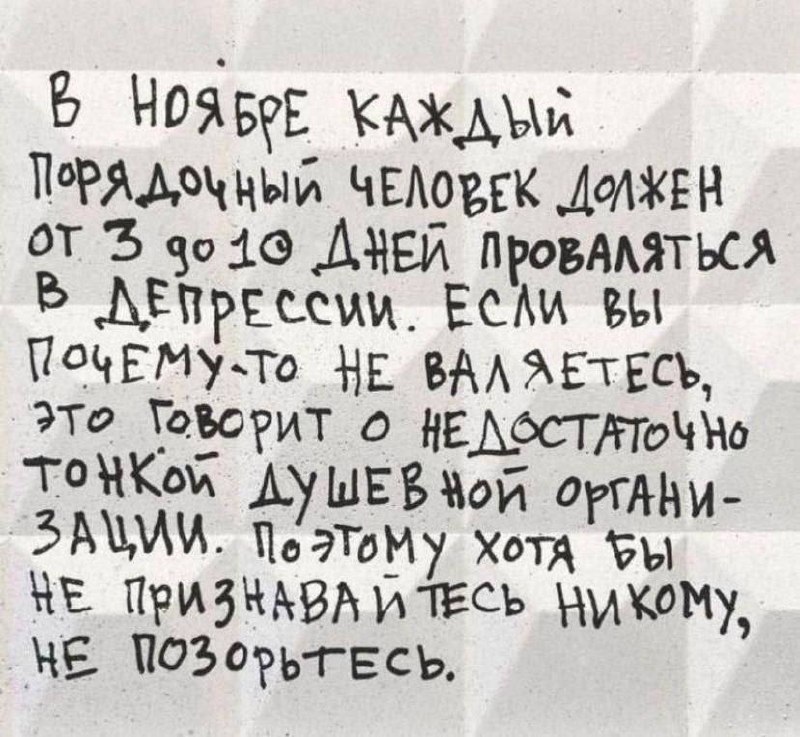 В НОЯБРЕ КАЖДЫЙ
ПОРЯДОЧНЫЙ ЧЕЛОВЕК ДОЛЖЕН
ОТ 3 до 10 ДНЕЙ ПРОВАЛЯТЬСЯ
В ДЕПРЕССИИ. ЕСЛИ ВЫ
ПОЧЕМУ-ТО НЕ ВАЛЯЕТЕСЬ,
ЭТО ГОВОРИТ О НЕДОСТАТОЧНО
ТОНКОЙ ДУШЕВНОЙ ОРГАНИ-
ЗАЦИИ. ПОЭТОМУ ХОТЯ БЫ
НЕ ПРИЗНАВАЙТЕСЬ НИКОМУ,
НЕ ПОЗОРЬТЕСЬ.